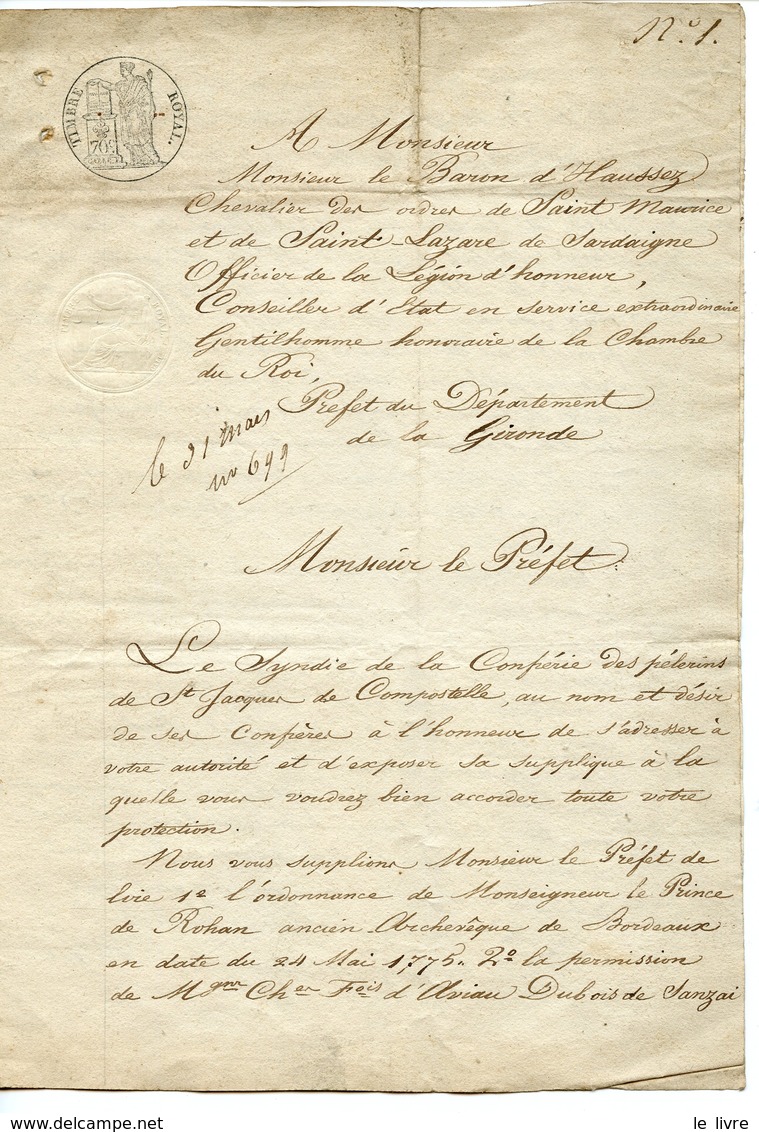 N.º 1.
TIMBRE ROYAL.
70c
A Monsieur
Monsieur le Baron d'Haussez
Chevalier des ordres de Saint Maurice
et de Saint-Lazare de Sardaigne
Officier de la Légion d'honneur,
Conseiller d'Etat en service extraordinaire
Gentilhomme honoraire de la Chambre
du Roi,
Prefet du Département
de la Gironde
le 31 mars
nº 699
Monsieur le Préfet.
Le Syndic de la Confrérie des pélerins
de St Jacques de Compostelle, au nom et désir
de ses Confrères à l'honneur de s'adresser à
votre autorité et d'exposer sa supplique à la
quelle vous voudrez bien accorder toute votre
protection.
Nous vous supplions Monsieur le Préfet de
lire 1º l'ordonnance de Monseigneur le Prince
de Rohan ancien Archevêque de Bordeaux
en date du 24 Mai 1775. 2º la permission
de Mgnr Cher Fois d'Aviau Dubois de Sanzai
le livre